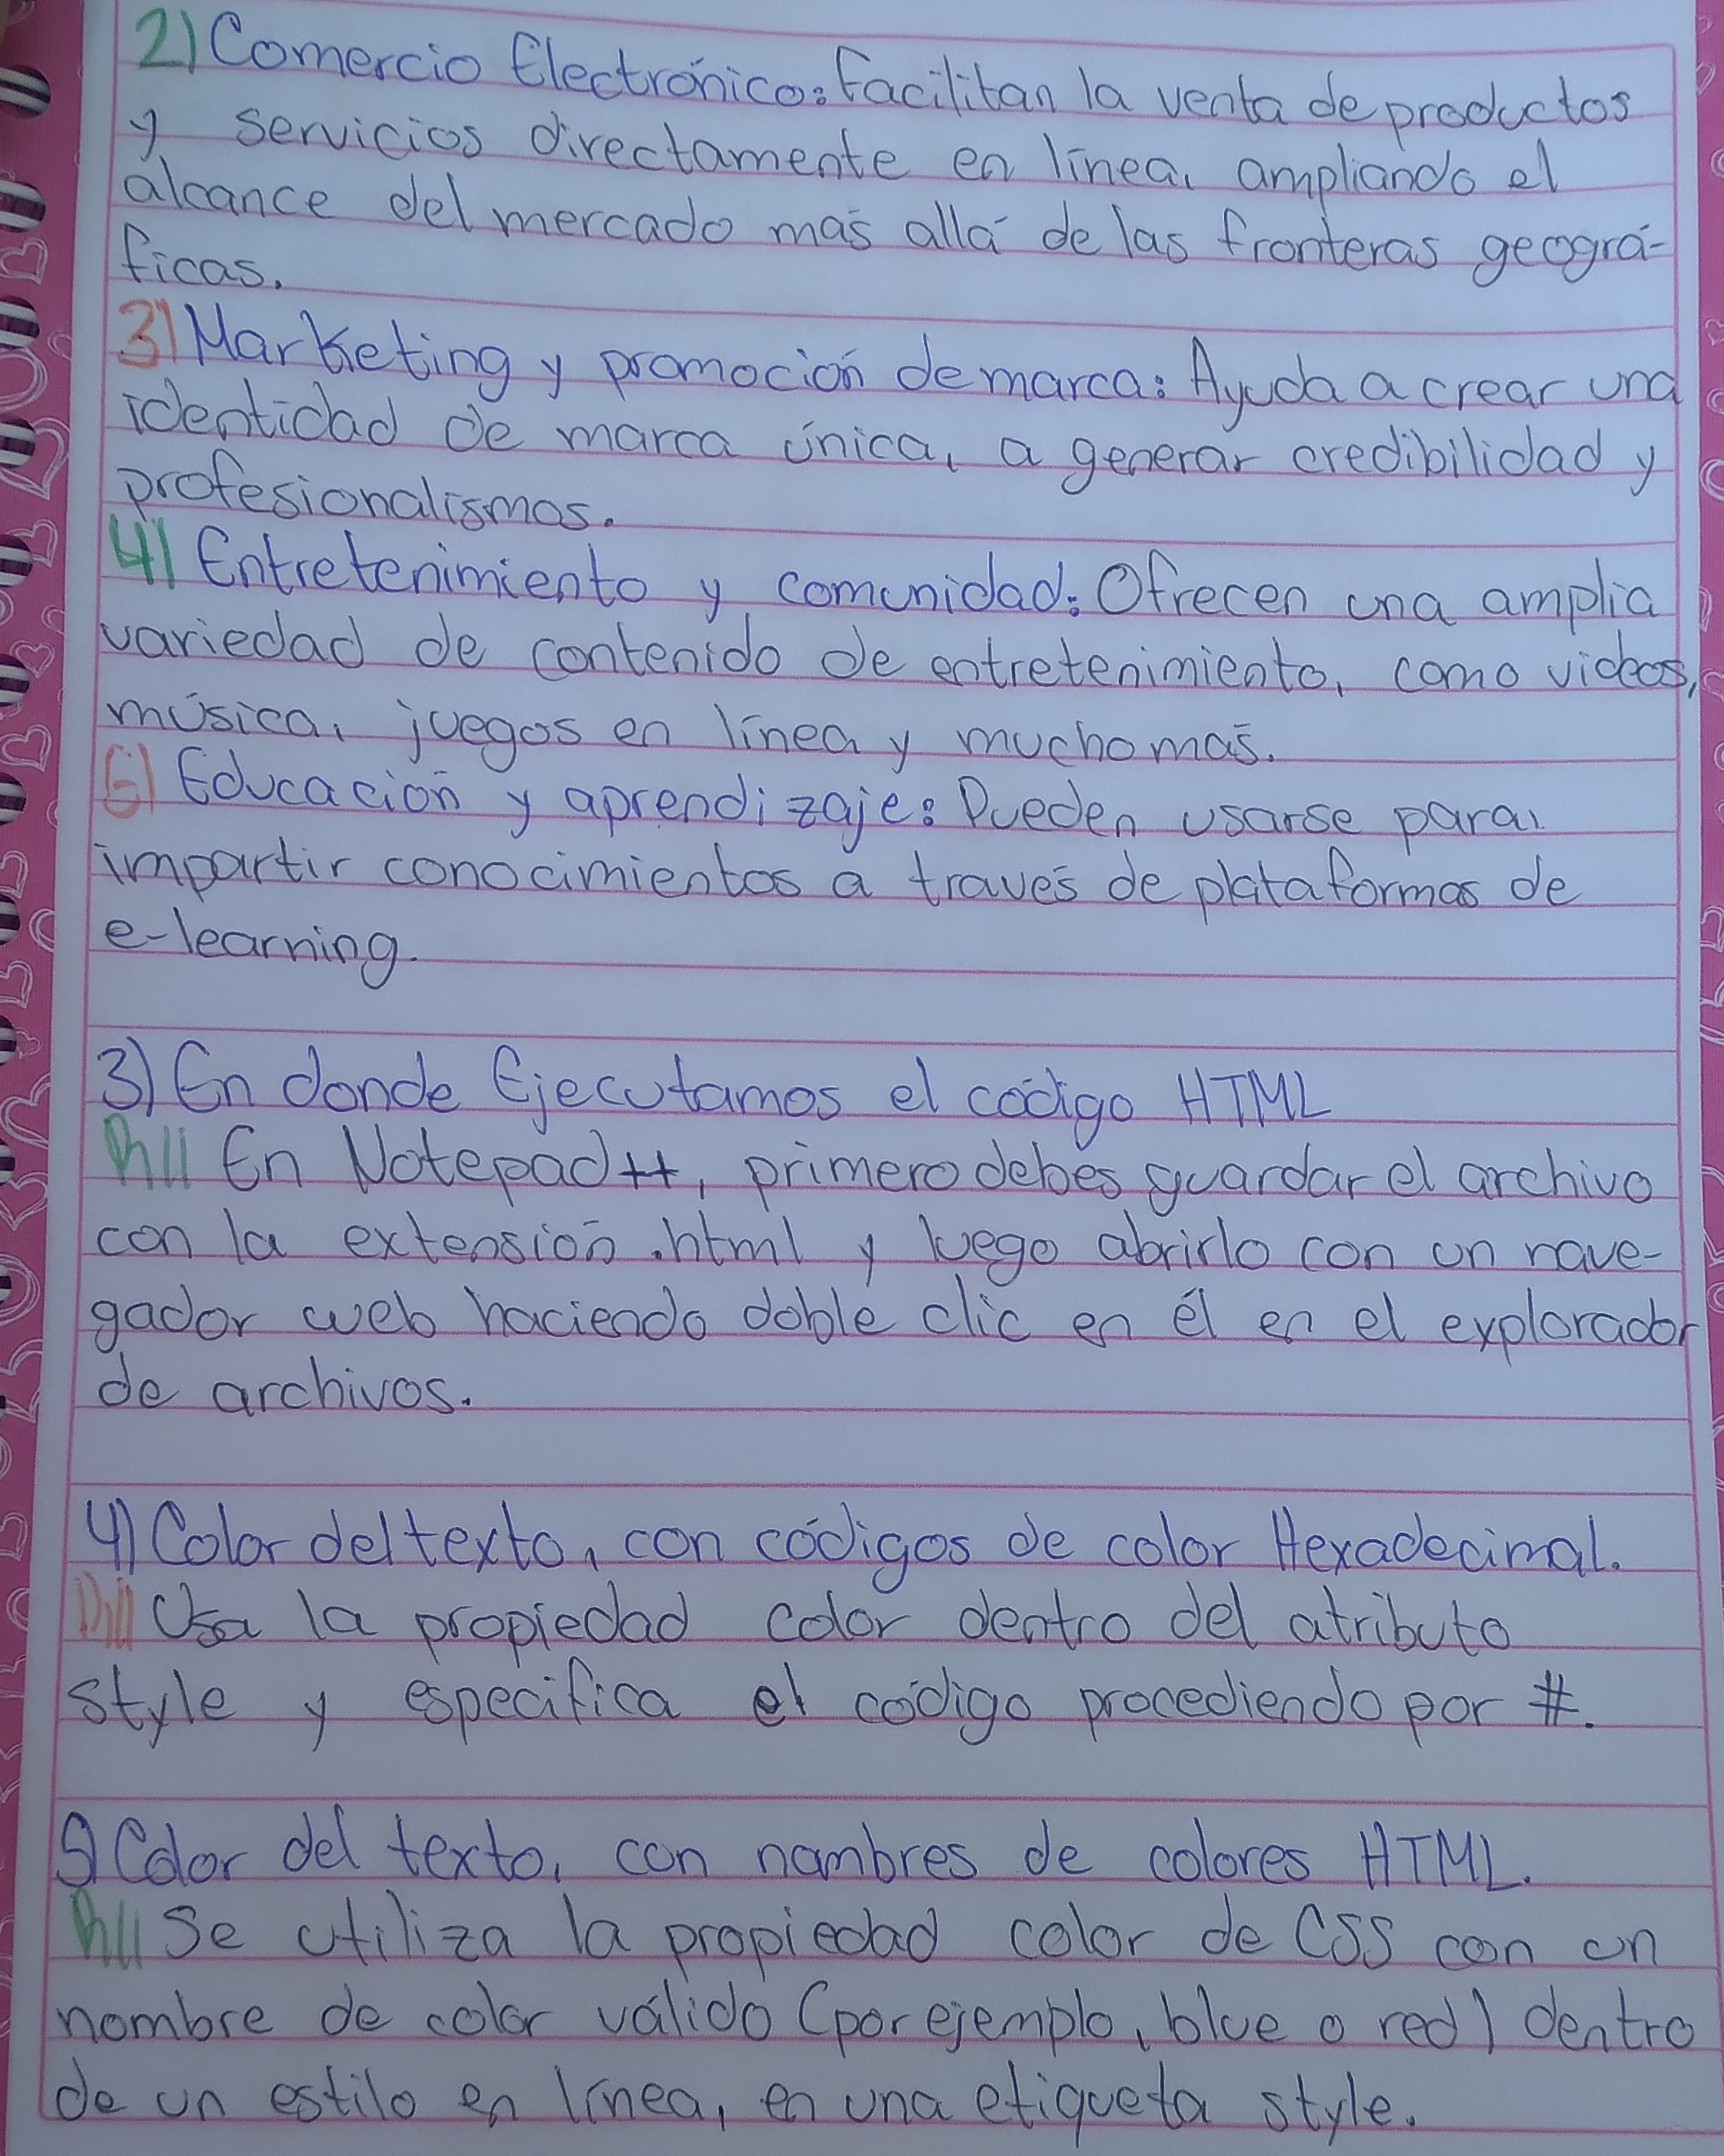 2) Comercio Electrónico: Facilitan la venta de productos
y servicios directamente en línea, ampliando el
alcance del mercado más allá de las fronteras geográ-
ficas.
3) Marketing y promoción de marca: Ayuda a crear una
identidad de marca única, a generar credibilidad y
profesionalismos.
4) Entretenimiento y comunidad: Ofrecen una amplia
variedad de contenido de entretenimiento, como videos,
música, juegos en línea y mucho más.
5) Educación y aprendizaje: Pueden usarse para,
impartir conocimientos a través de plataformas de
e-learning.
3) En donde Ejecutamos el código HTML
R// En Notepad++, primero debes guardar el archivo
con la extensión .html y luego abrirlo con un nave-
gador web haciendo doble clic en él en el explorador
de archivos.
4) Color del texto, con códigos de color Hexadecimal.
R// Usa la propiedad color dentro del atributo
style y especifica el código procediendo por #.
5) Color del texto, con nombres de colores HTML.
R// Se utiliza la propiedad color de CSS con un
nombre de color válido (por ejemplo, blue o red) dentro
de un estilo en línea, en una etiqueta style.